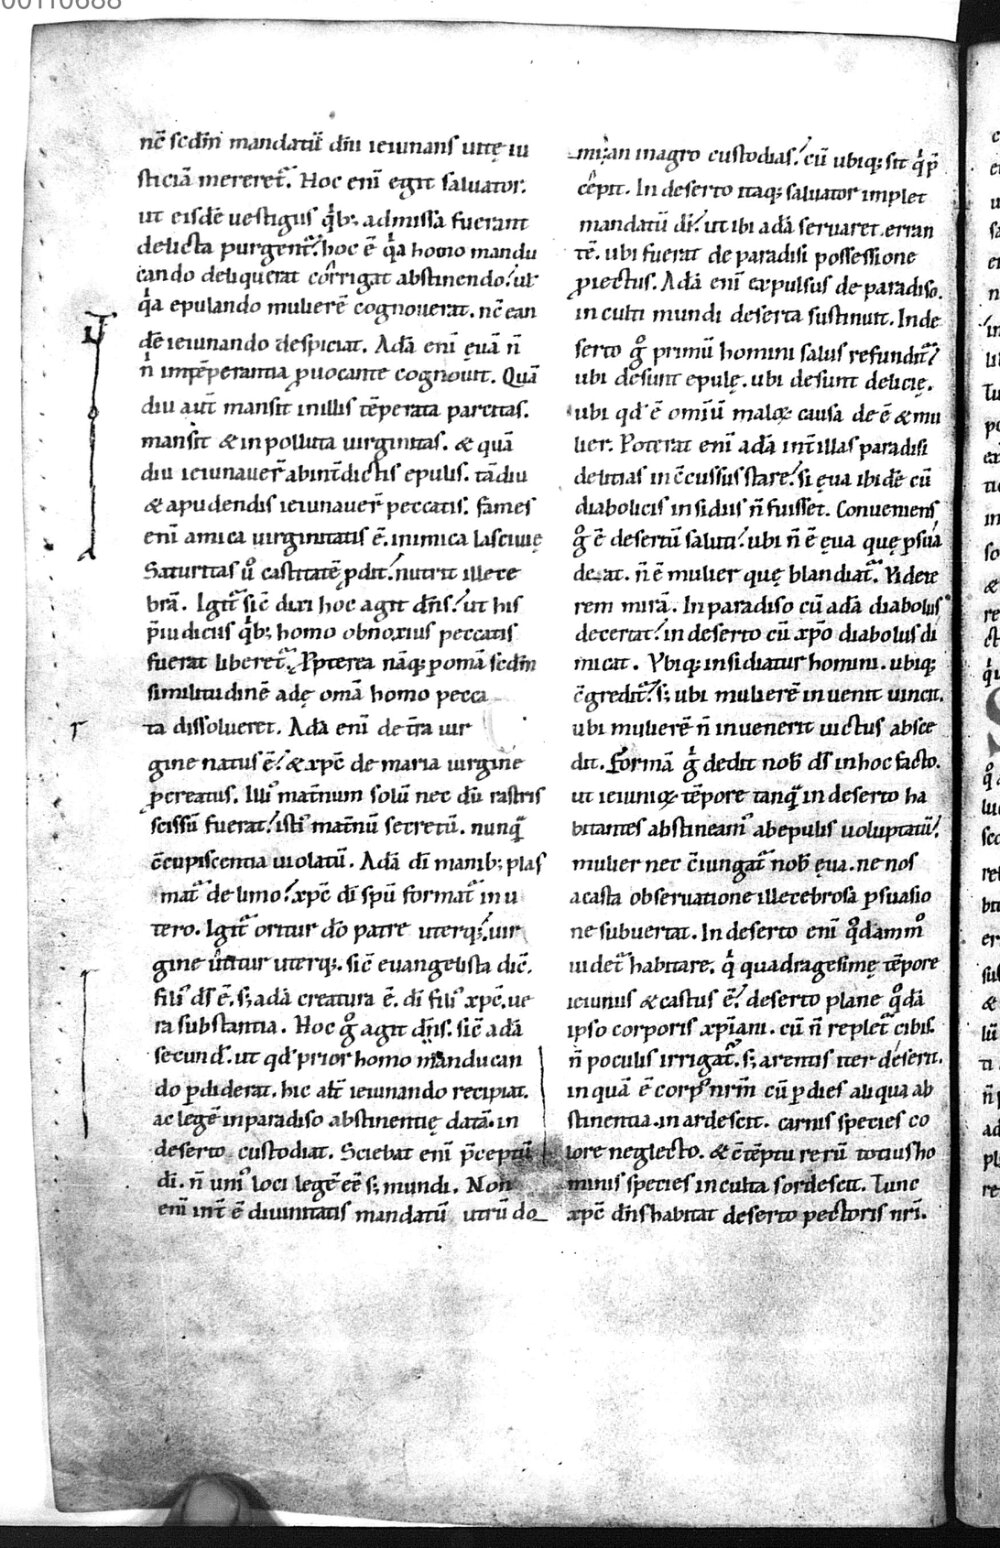 nc̄ scdm̄ mandatū dn̄i ieiunans uitę iu
sticiā mereret᷑. Hoc enī egit saluator.
ut eisdē uestigiis qͥb; admissa fuerant
delicta purgent᷑. hoc ē qͥa homo mandu
cando deliquerat corrigat abstinendo. ut
qͥa epulando mulierē cognouerat. nc̄ ean
dē ieiunando despiciat. Adā enī euā n̄
n̄ intēperantia ꝓuocante cognouit. Quā
diu aut̄ mansit in illis tēperata parcitas.
mansit & inpolluta uirginitas. & quā
diu ieiunauer̄ ab int̄dictis epulis. tādiu
& apudendis ieiunauer̄ peccatis. fames
enī amica uirginitatis ē. inimica lasciuię
Saturitas ů castitatē ꝓdit. nutrit illece
brā. Igit᷑ sic̄ diri hoc agit dn̄s. ut his
p̄iudiciis qͥb; homo obnoxius peccatis
fuerat liberet᷑. Ppterea nāq; pomā scdm̄
similitudinē adę omā homo pecca
ta dissolueret. Adā enī de t̄ra uir
gine natus ē. & xp̄c de maria uirgine
ꝓcreatus. Illiꝰ mat̄num solū nec dū rastris
scissū fuerat. istiꝰ mat̄nū secretū. nunqͣ
c̄cupiscentia uiolatū. Adā dī manib; plas
mat᷑ de limo. xp̄c dī spū format᷑ in u
tero. Igit᷑ oritur dō patre uterq;. uir
gine utitur uterq;. sic̄ euangelista dic̄.
filiꝰ ds̄ ē. s; adā creatura ē. dī filiꝰ xp̄c. ue
ra substantia. Hoc g̊ agit dn̄s. sic̄ adā
secund̄. ut qd̄ prior homo manducan
do ꝑdiderat. hic alt̄ ieiunando recipiat.
ac legē in paradiso abstinentię datā. in
deserto custodiat. Sciebat enī p̄ceptū
dī. n̄ uniꝰ loci legē eē s; mundi. Non
enī int̄ ē diuinitatis mandatū utrū do
mi an in agro custodias. cū ubiq; sit qͥ p̄
cēpit. In deserto itaq; saluator implet
mandatū dī. ut ibi adā seruaret erran
tē. ubi fuerat de paradisi possessione
ꝓiectus. Adā enī expulsus de paradiso.
inculti mundi deserta sustinuit. Inde
serto g̊ primū homini salus refundit᷑.
ubi desunt epulę. ubi desunt delicię.
ubi qd̄ ē omiū maloꝝ causa deē & mu
lier. Poterat enī adā int̄ illas paradisi
delitias inc̄cussus stare. si eua ibidē cū
diabolicis insidiis n̄ fuisset. Conueniens
g̊ ē desertū saluti. ubi n̄ ē eua quę ꝑsua
deat. n̄ ē mulier quę blandiat᷑. Videte
rem mirā. In paradiso cū adā diabolus
decertat. in deserto cū xp̄o diabolus di
micat. Vbiq; insidiatur homini. ubiq;
c̄gredit᷑. s; ubi mulierē inuenit uincit.
ubi mulierē n̄ inuenerit uictus absce
dit. Formā g̊ dedit nob̄ ds̄ in hoc facto.
ut ieiunioꝝ tēpore tanqͣ in deserto ha
bitantes abstineamꝰ ab epulis uoluptatū.
mulier nec c̄iungat᷑ nob̄ eua. ne nos
a casta obseruatione illecebrosa ꝑsuasio
ne subuertat. In deserto enī qͦdammͦ
uidet᷑ habitare. qͥ quadragesimę tēpore
ieiunus & castus ē. deserto plane qͦdā
ipso corporis xp̄iani. cū n̄ replet᷑ cibis.
n̄ poculis irrigat᷑. s; arentis iter desert.
inquā ē corpꝰ nrm̄ cū ꝑ dies aliqua ab
stinentia. inardescit. carnis species co
lore neglecto. & c̄tēptu rerū totius ho
minis species inculta sordescit. Tunc
xp̄c dn̄s habitat deserto pectoris nr̄i.